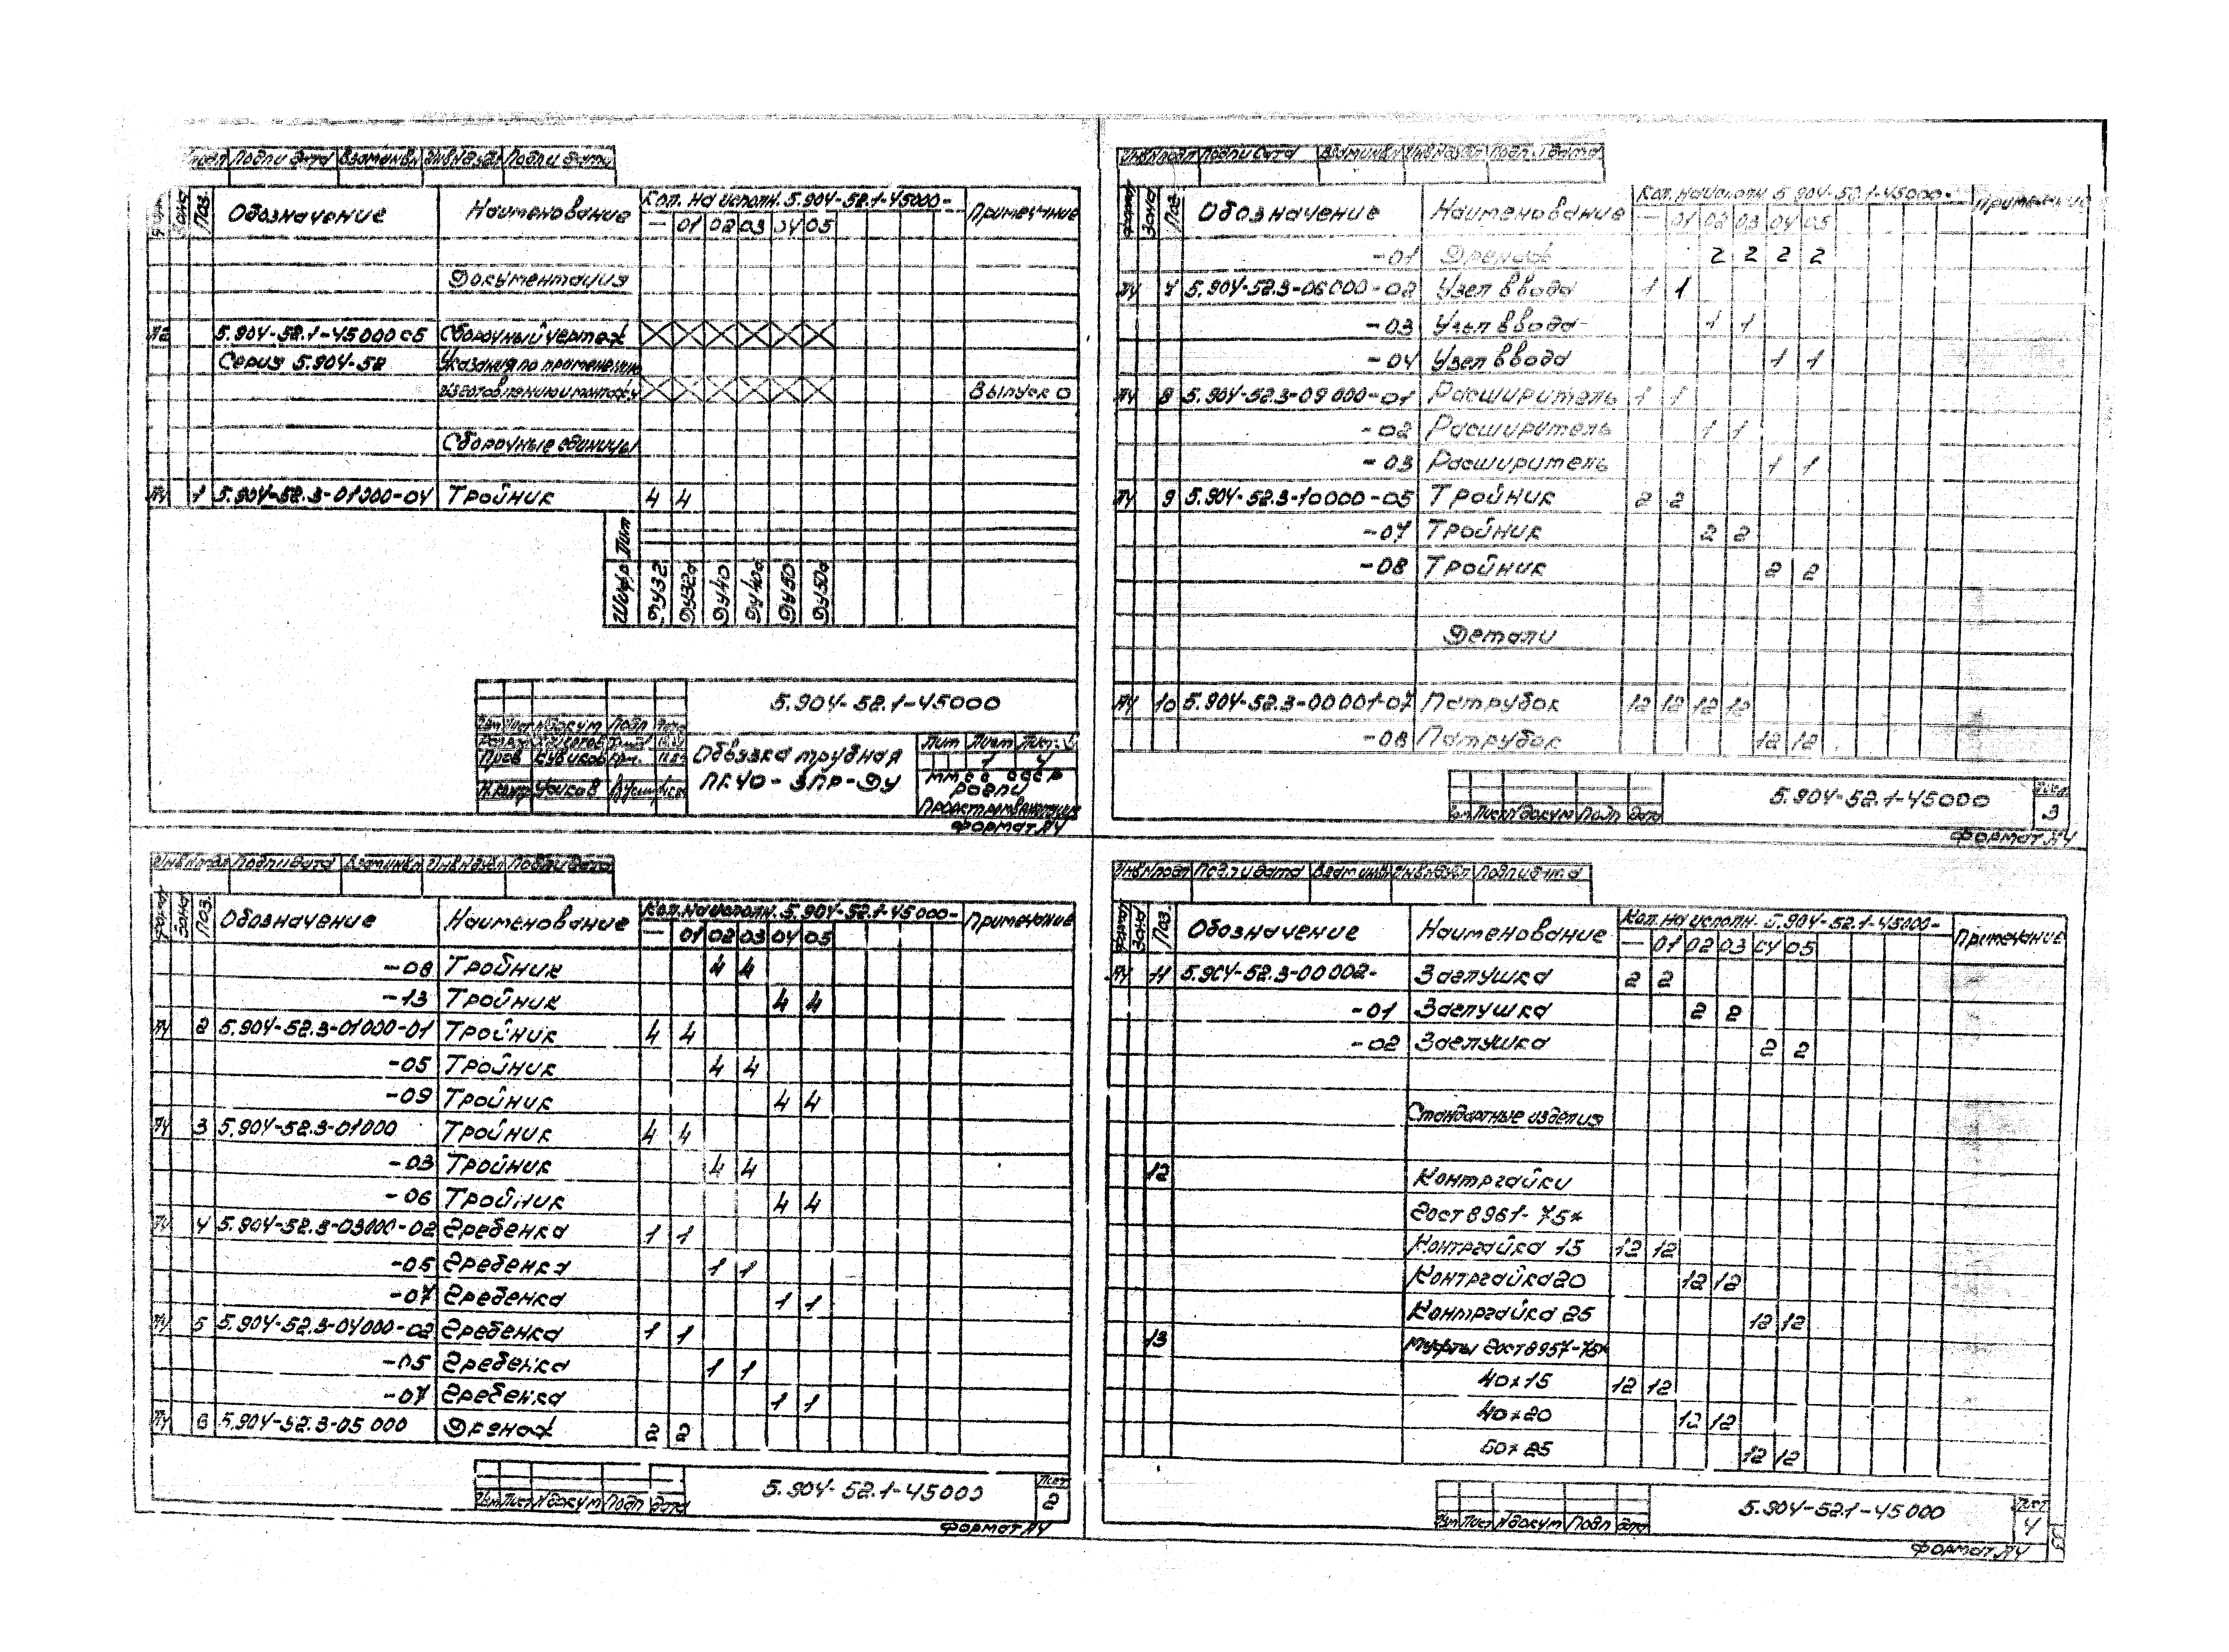 Подпи дата Взаминвн Инвндубл Подпи дата
Зона Поз. Обозначение Наименование Кол. на исполн. 5.904-52.1-45000- Примечание
— 01 02 03 04 05
Документация
А2 5.904-52.1-45000 СБ Сборочный чертеж
Серия 5.904-52 Указания по применению
изготовлению и монтажу Выпуск 0
Сборочные единицы
А4 1 5.904-52.3-01000-04 Тройник 4 4
Лит
Шифр ДУ32 ДУ32а ДУ40 ДУ40а ДУ50 ДУ50а
5.904-52.1-45000
Изм Лист №докум Подп Дата
Обвязка трубная
ПК40-3ПР-ДУ
Лит Лист
1 4
ММСС СССР
Пров
Н.контр
Формат А4
Инвнподл Подпи дата Взаминвн Инвндубл Подпи дата
Формат Зона Поз. Обозначение Наименование Кол. на исполн. 5.904-52.1-45000- Примечание
— 01 02 03 04 05
-08 Тройник 4 4
-13 Тройник 4 4
А4 2 5.904-52.3-01000-01 Тройник 4 4
-05 Тройник 4 4
-09 Тройник 4 4
А4 3 5.904-52.3-01000 Тройник 4 4
-03 Тройник 4 4
-06 Тройник 4 4
А4 4 5.904-52.3-03000-02 Гребенка 1 1
-05 Гребенка 1 1
-07 Гребенка 1 1
А4 5 5.904-52.3-04000-02 Гребенка 1 1
-05 Гребенка 1 1
-07 Гребенка 1 1
А4 6 5.904-52.3-05 000 Дренаж 2 2
5.904-52.1-45000
Лист
2
Изм Лист №докум Подп Дата
Формат А4
Инвнподл Подпи дата Взаминвн Инвндубл Подпи дата
Формат Зона Поз. Обозначение Наименование Кол. на исполн. 5.904-52.1-45000- Примечание
— 01 02 03 04 05
-01 Дренаж 2 2 2 2
А4 7 5.904-52.3-06000-02 Узел ввода 1 1
-03 Узел ввода 1 1
-04 Узел ввода 1 1
А4 8 5.904-52.3-09000-01 Расширитель 1 1
-02 Расширитель 1 1
-03 Расширитель 1 1
А4 9 5.904-52.3-10000-05 Тройник 2 2
-07 Тройник 2 2
-08 Тройник 2 2
Детали
А4 10 5.904-52.3-00001-07 Патрубок 12 12 12 12
-08 Патрубок 12 12
5.904-52.1-45000
Лист
3
Изм Лист №докум Подп Дата
Формат А4
Инвнподл Подпи дата Взаминвн Инвндубл Подпи дата
Формат Зона Поз. Обозначение Наименование Кол. на исполн. 5.904-52.1-45000- Примечание
— 01 02 03 04 05
А4 11 5.904-52.3-00002- Заглушка 2 2
-01 Заглушка 2 2
-02 Заглушка 2 2
Стандартные изделия
12 Контргайки
Гост 8961-75*
Контргайка 15 12 12
Контргайка 20 12 12
Контргайка 25 12 12
13 Муфты Гост 8957-75*
40×15 12 12
40×20 12 12
50×25 12 12
5.904-52.1-45000
Лист
4
Изм Лист №докум Подп Дата
Формат А4